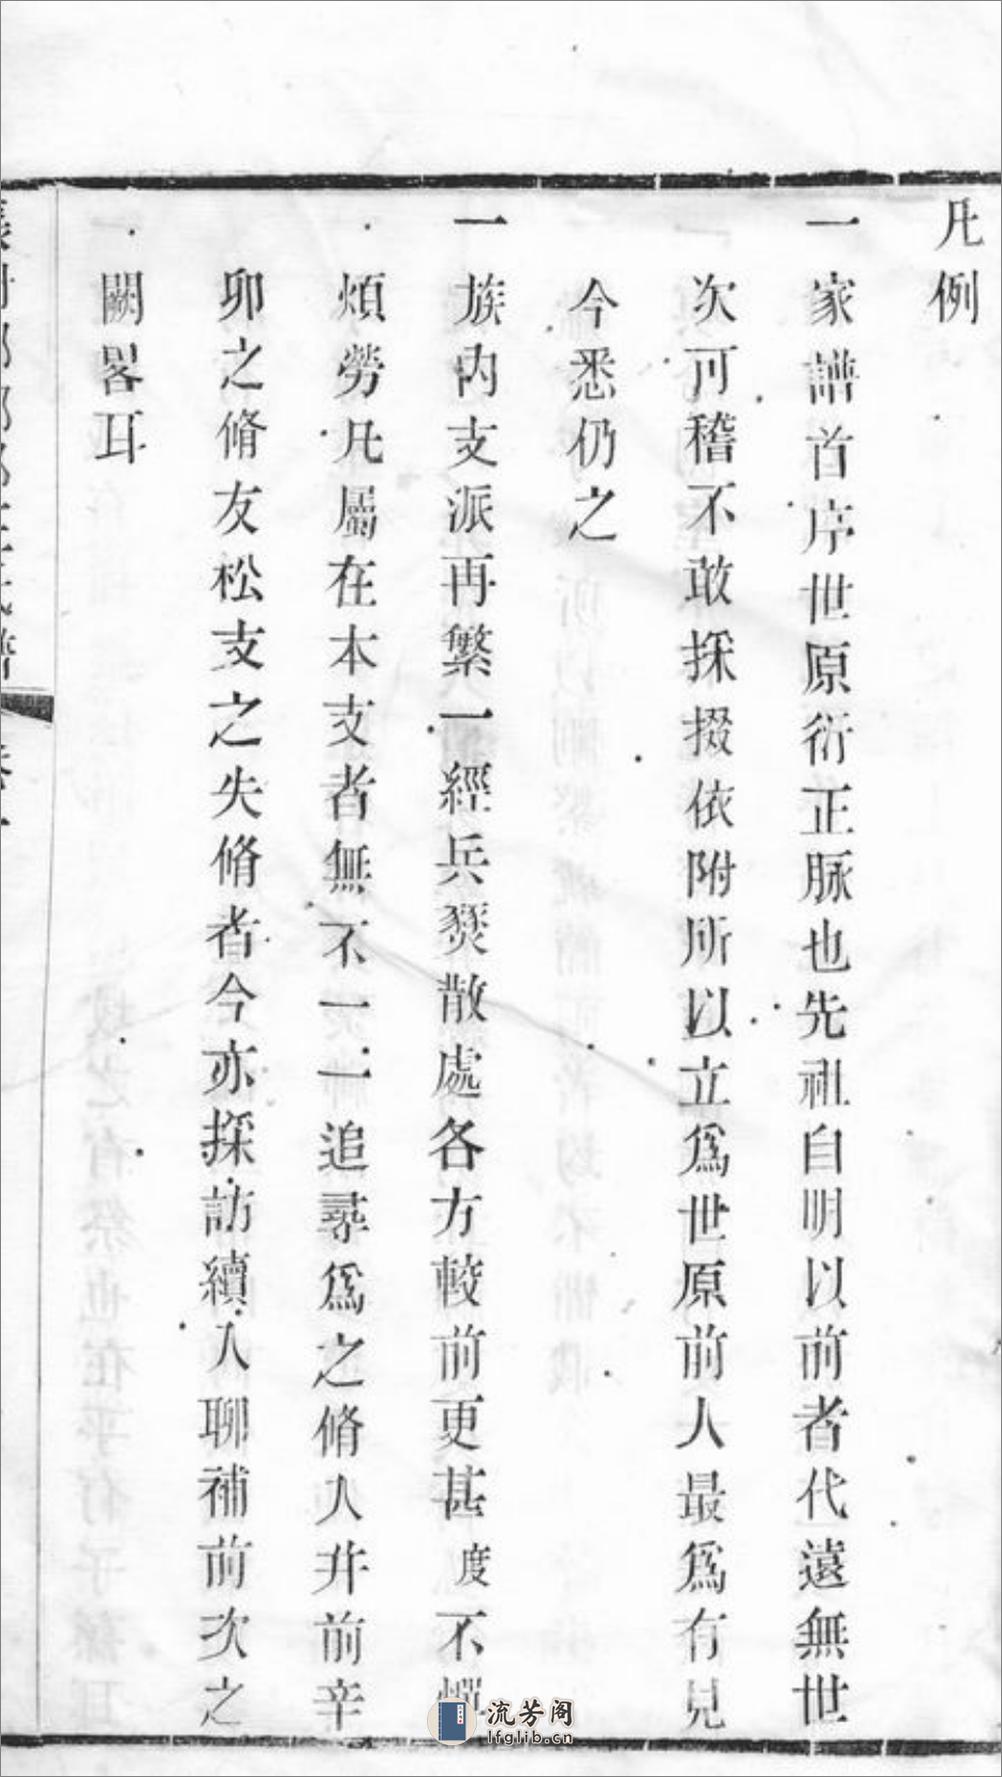 凡例
一家譜首序世原衍正脉也先祖自明以前者代遠無世
次可稽不敢採掇依附所以立爲世原前人最爲有見
今悉仍之
一族內支派再繁一經兵燹散處各方較前更甚度不憚
煩勞凡屬在本支者無不一一追尋爲之脩入井前辛
卯之脩友松支之失脩者今亦採訪續入聊補前次之
闕畧耳
氏譜
流芳阁
lfglib.cn